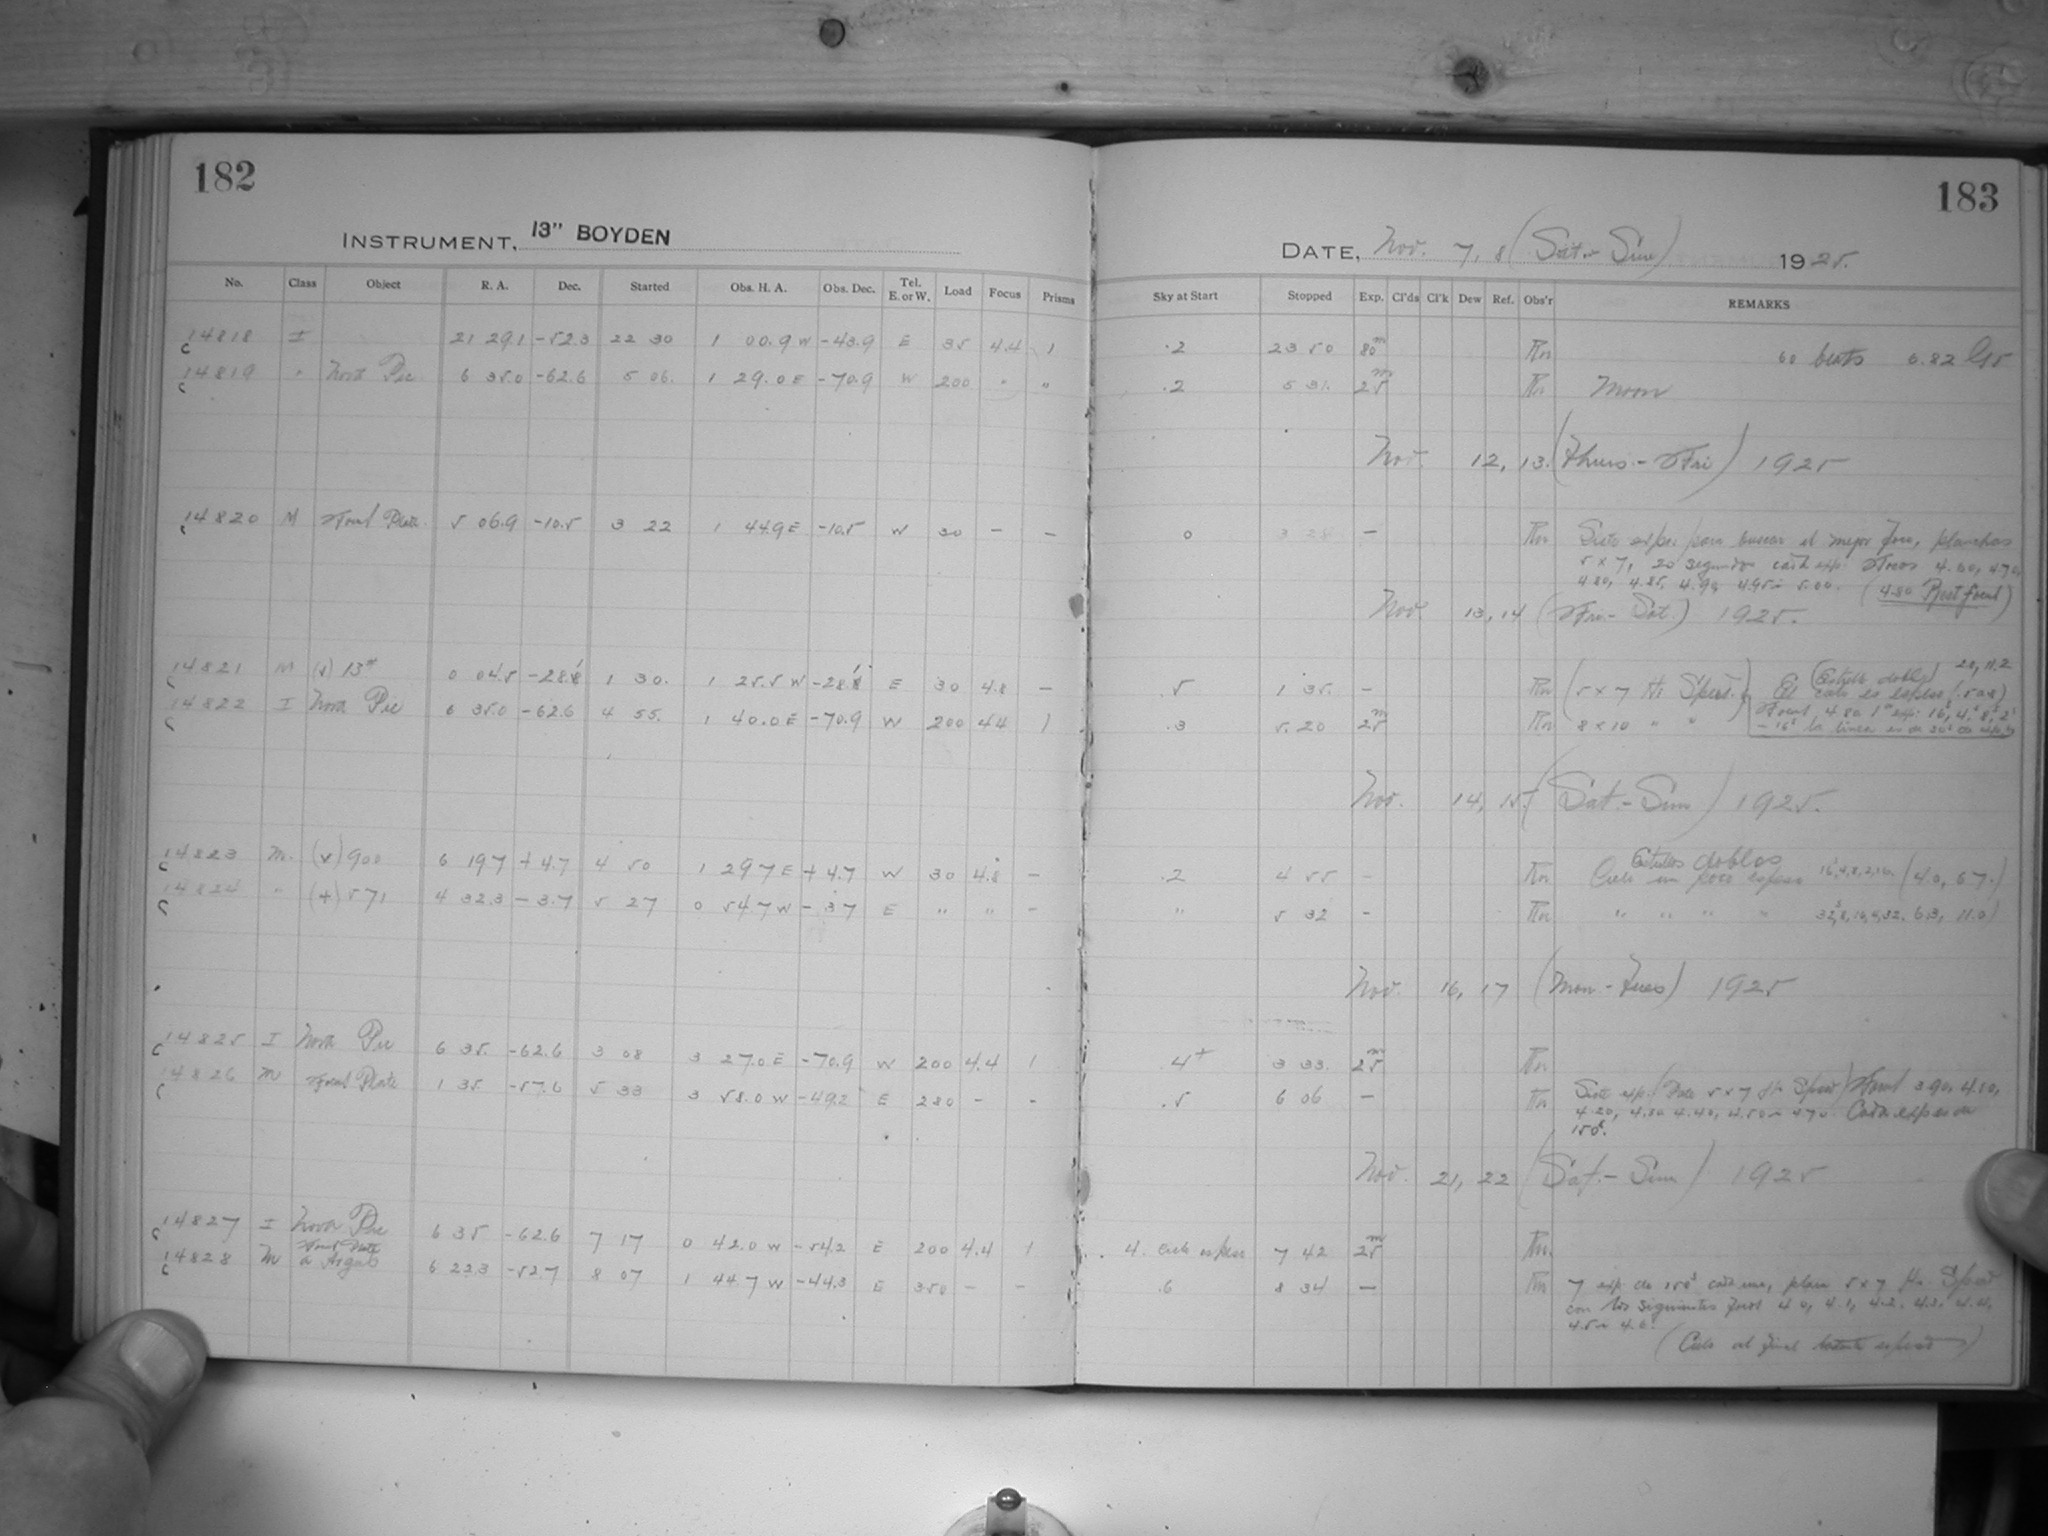 182
183
INSTRUMENT, 13" BOYDEN
DATE, Nov. 7, 8 (Sat.- Sun) 1925.
No. Class Object R. A. Dec. Started Obs. H. A. Obs. Dec. Tel. E. or W. Load Focus Prisms Sky at Start Stopped Exp. Cl'ds Cl'k Dew Ref. Obs'r REMARKS
C 14818 I 21 29.1 -52.3 22 30 1 00.9 W -43.9 E 35 4.4 1 .2 23 50 80m 60 beats 6.82
C 14819 " Nova Pic 6 35.0 -62.6 5 06. 1 29.0 E -70.9 W 200 " " .2 5 31. 25m Moon
Nov. 12, 13. (Thurs.- Fri) 1925
C 14820 M Focal Plate. 5 06.9 -10.5 3 22 1 44.9 E -10.5 W 30 - - 0 3 28 - Siete exps. para buscar el mejor foco, planchas
5 x 7, 20 segundos cada exp. Focos 4.60, 4.70
4.80, 4.85, 4.90, 4.95 5.00. (4.80 Best focal)
Nov 13, 14 (Fri.- Sat.) 1925.
C 14821 M (v) 13* 0 04.5 -28.8 1 30. 1 25.5 W -28.8 E 30 4.8 - .5 1 35. - (5 x 7 Hi Speed.) (Estrella doble) 28, 11.2
El cielo es espeso
C 14822 I Nova Pic 6 35.0 -62.6 4 55. 1 40.0 E -70.9 W 200 4.4 1 .3 5. 20 25m 8 x 10 " " Focal, 4.80 1a exp. 16s, 4s, 8s, 2s
- 16s la linea es de 30s de exp.
Nov. 14, 15. (Sat.- Sun) 1925.
C 14823 M. (v) 900 6 19.7 + 4.7 4 50 1 29.7 E + 4.7 W 30 4.8 - .2 4 55 - Estrellas dobles
Cielo un poco espeso 16,4,8,2,16. (4.0, 6.7.)
C 14824 " (+) 571 4 32.3 - 3.7 5 27 0 54.7 W - 3.7 E " " - " 5 32 - " " " " 32s,8,16,4,32. 6.3, 11.0)
Nov. 16, 17 (Mon.- Tues) 1925
C 14825 I Nova Pic 6 35. -62.6 3 08 3 27.0 E -70.9 W 200 4.4 1 4+ 3 33. 25m
C 14826 M Focal Plate 1 35. -57.6 5 33 3 58.0 W -49.2 E 280 - - .5 6 06 - Siete exp. (Plate 5 x 7 Hi Speed) Focal 3.90, 4.10,
4.20, 4.30 4.40, 4.50 4.70 Cada exp es de
150s.
Nov. 21, 22 (Sat.- Sun) 1925
C 14827 I Nova Pic 6 35 -62.6 7 17 0 42.0 W -54.2 E 200 4.4 1 .4. Cielo espeso 7 42 25m
C 14828 M Focal Plate
α Argus 6 22.3 -52.7 8 07 1 44.7 W -44.3 E 350 - - .6 8 34 - 7 exp. de 150s cada una, placa 5 x 7 Hi- Speed
con los siguientes focos 4.0, 4.1, 4.2, 4.3, 4.4,
4.5 4.6.
(Cielo al final bastante espeso)